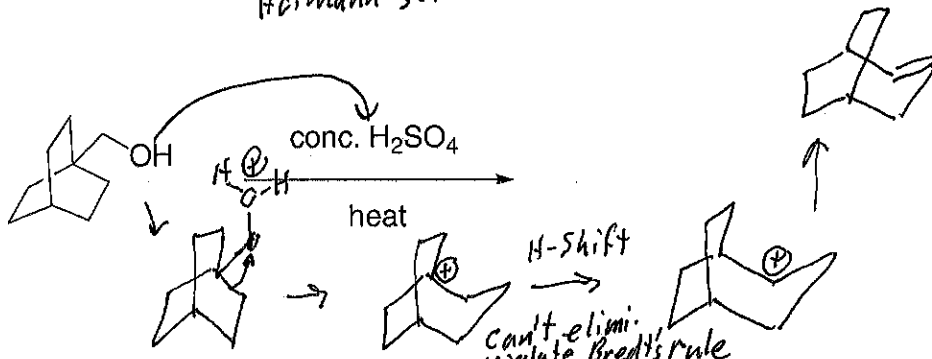 Hofmann
OH
conc. H₂SO₄
H ⊕
O-H
heat
H-Shift
⊕
⊕
Can't elimi.
violate Bredt's rule